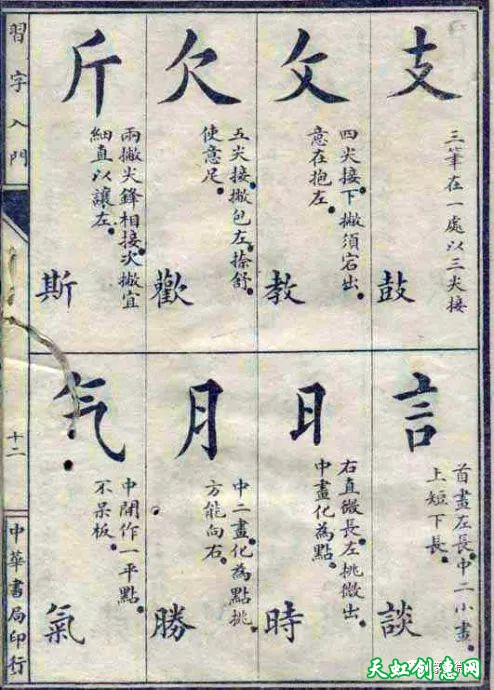 支
三筆在一處以三尖接
鼓
攵
四尖接下撇須宕出
意在抱左
教
欠
五尖接撇包左捺舒
使意足
歡
斤
兩撇尖鋒相接次撇宜
細直以讓左
斯
言
首畫左長中二小畫
上短下長
談
日
右直微長左挑微出
中畫化為點
時
月
中二畫化為點挑
方能向右
勝
气
中開作一平點
不呆板
氣
習字入門
十二
中華書局印行
天虹创意网